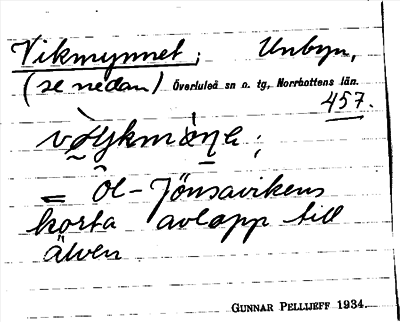 Vikmynnet; Unbyn,
(se nedan) Överluleå sn o. tg., Norrbottens län.
457.
= Öl-Jönsavikens
korta avlopp till
älven
GUNNAR PELLIJEFF 1934.